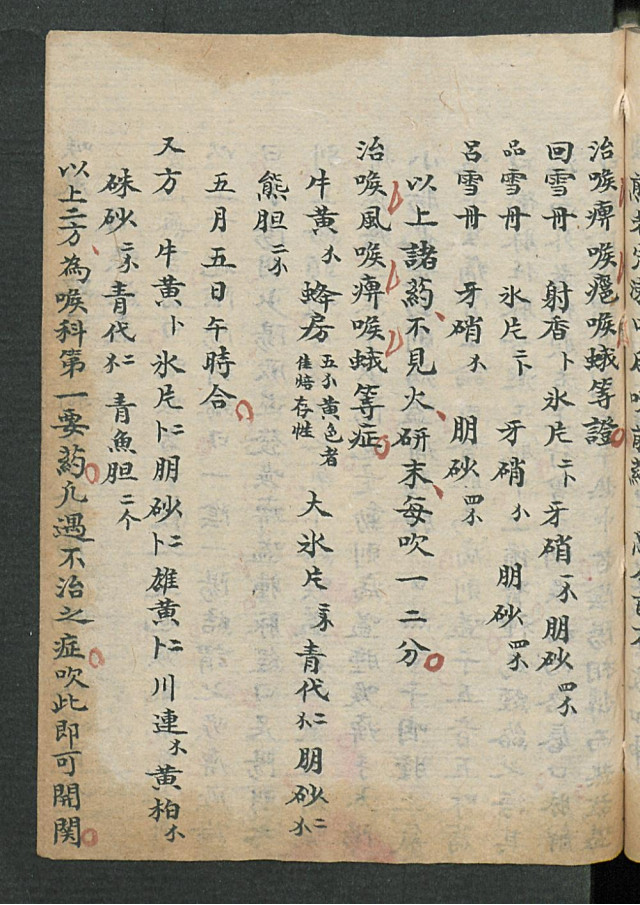 治喉痹喉癰喉蛾等證
回雪丹 射香卜 氷片二卜 牙硝一不 朋砂四不
品雪丹 氷片二卜 牙硝小 朋砂四不
呂雪丹 牙硝不 朋砂四不
以上諸药不見火研末每吹一二分
治喉風喉痹喉蛾等症
牛黄不 蜂房五不黄色者佳焙存性 大氷片 青代二不 朋砂二不
熊胆二不
五月五日午時合
又方 牛黄卜 氷片二卜 朋砂二卜 雄黄二卜 川連不 黄柏不
硃砂二不 青代二不 青魚胆二个
以上二方為喉科第一要药凢遇不治之症吹此即可開関